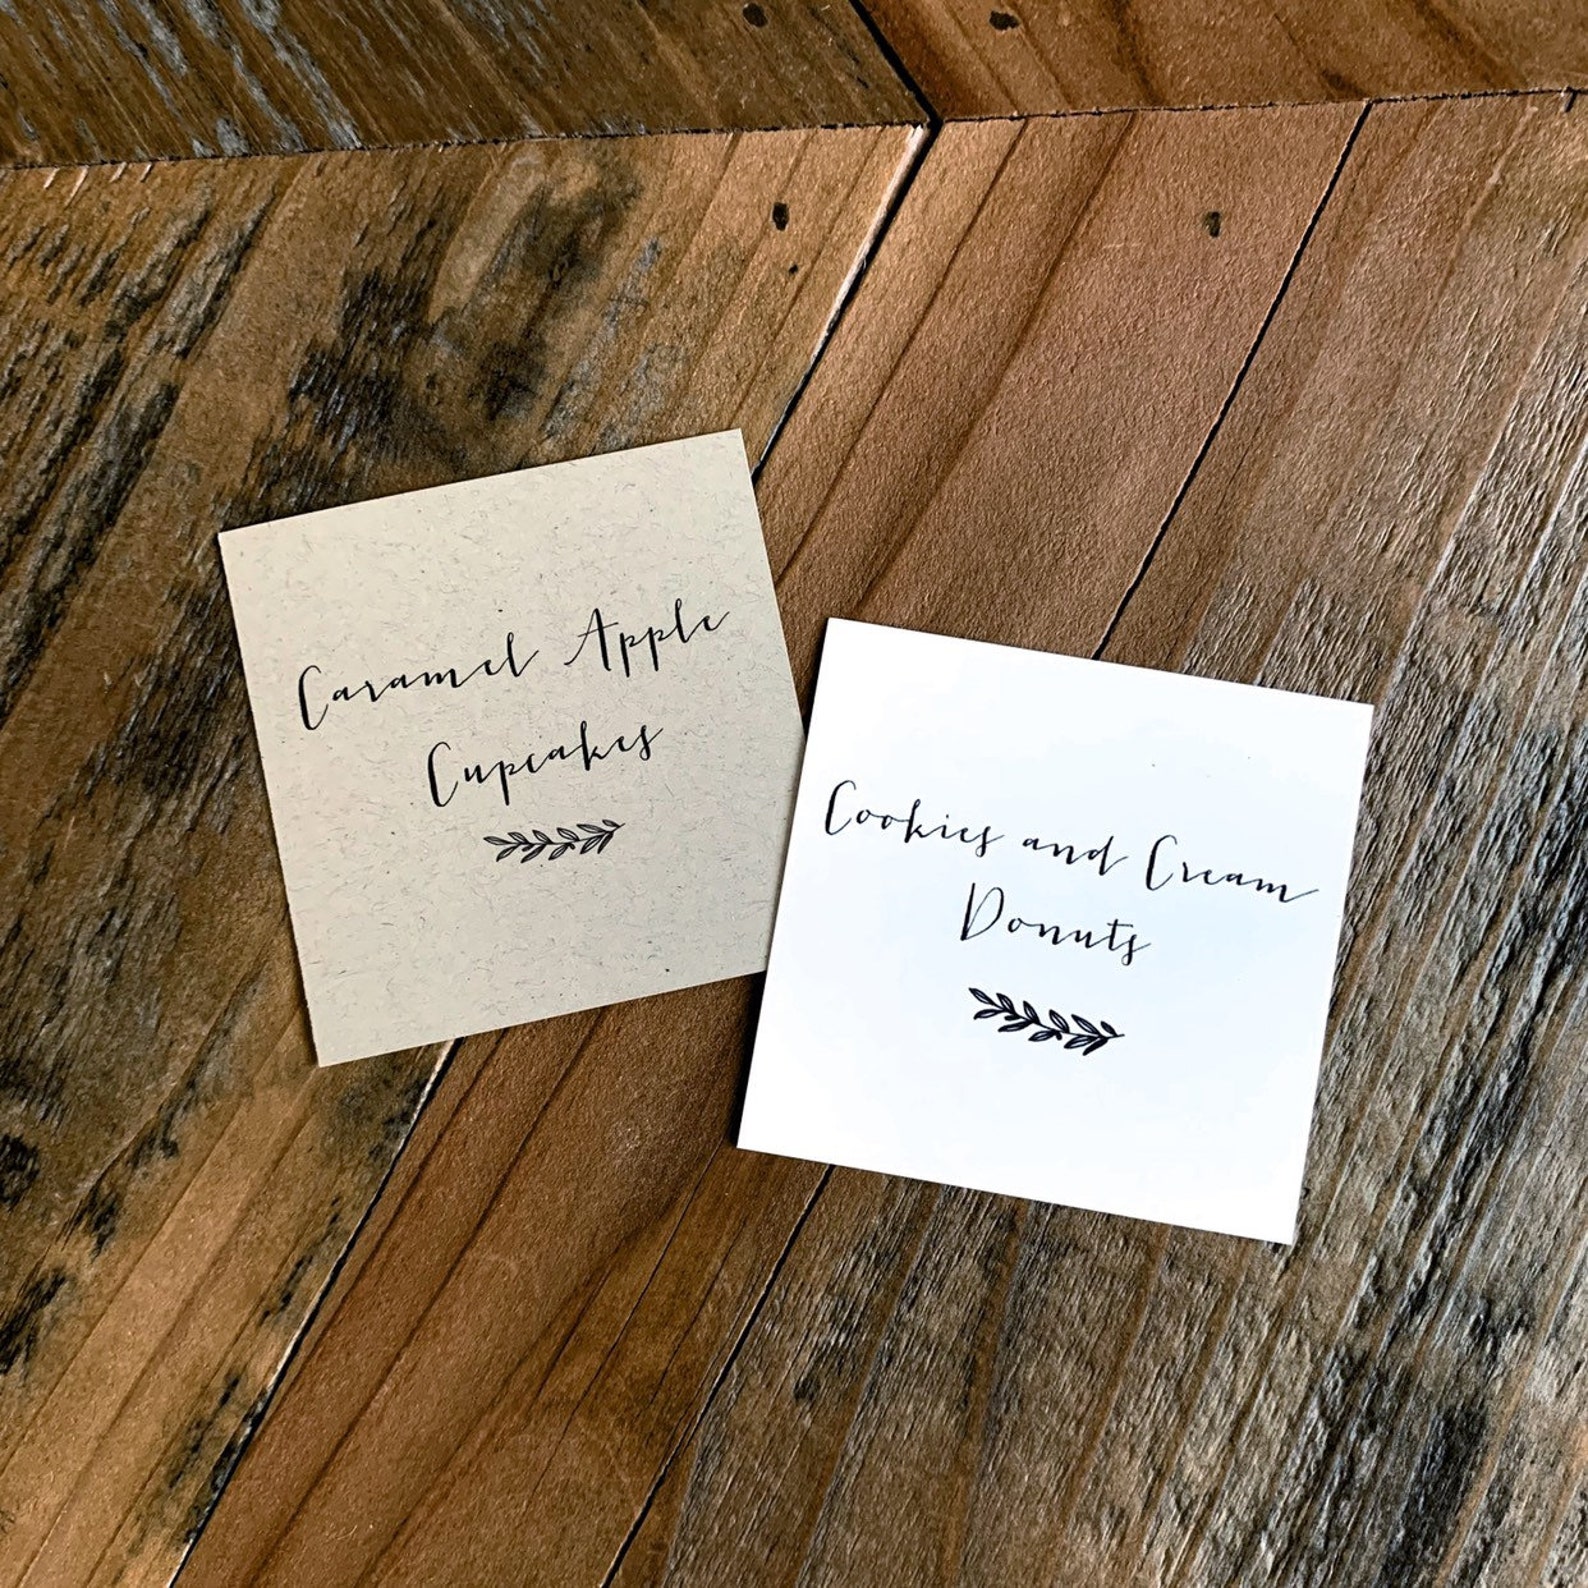 Caramel Apple
Cupcakes
Cookies and Cream
Donuts